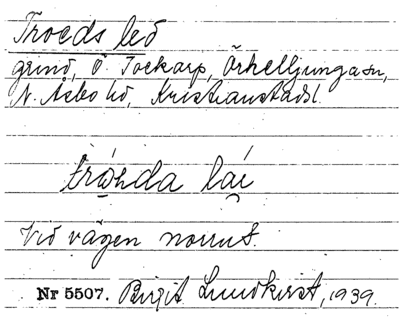 Troeds led
grind, Ö. Tockarp, Örkelljunga sn,
N. Åsbo hd, Kristianstads l.
vid vägen norrut.
Nr 5507. Birgit Lundkvist, 1939.